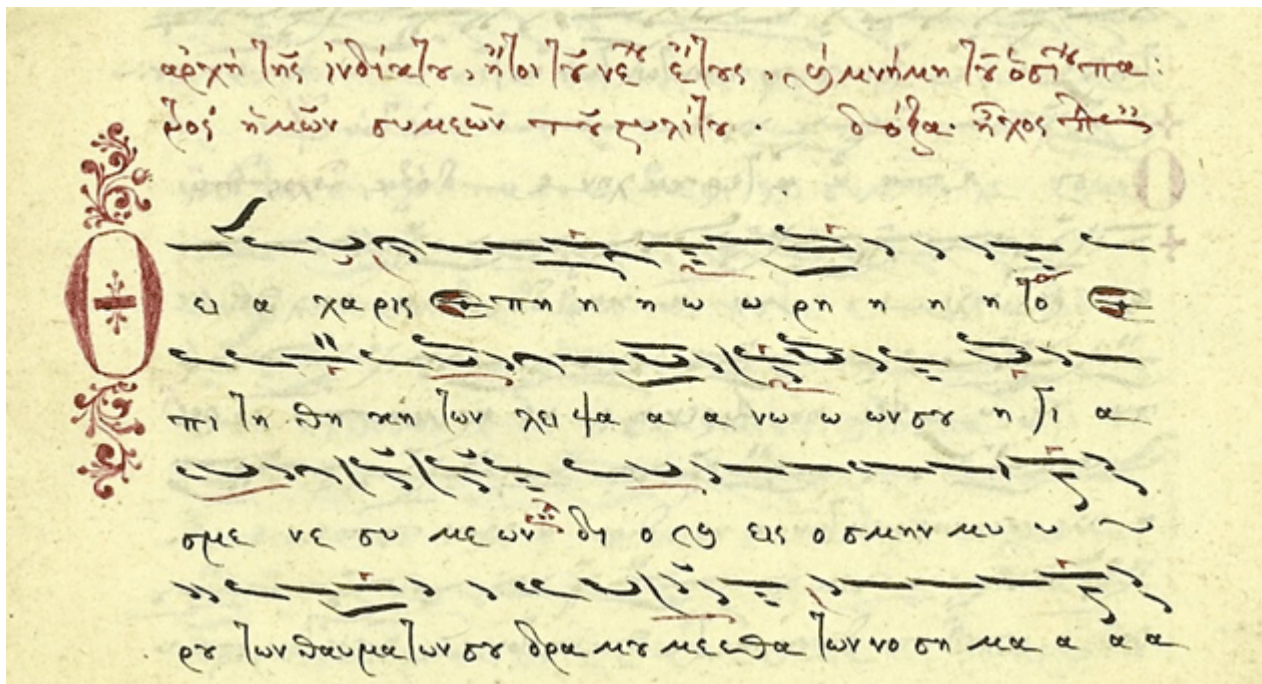 ἀρχὴ τῆς ἰνδίκτου, ἤτοι τοῦ νέου ἔτους, ϗ μνήμη τοῦ ὁσίου πα:
τρὸς ἡμῶν συμεὼν τοῦ στυλίτου. δόξα. ἦχος
Θ ει α χα ρις πη η η ω ω ρη η η η το
πι τη θη κη των λει ψα α α νω ω ων σου η γι α
σμε νε συ με ων δι ο ϗ εις ο σμην μυ υ υ
ρου των θαυμα των σου δρα μου με ε θα των νο ση μα α α α